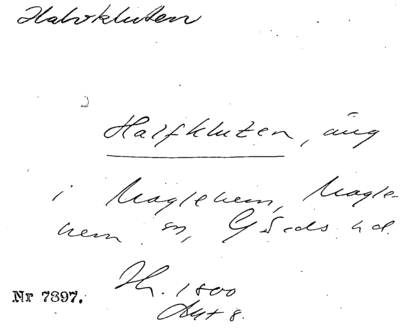 Halvkluten
Halfkluten, äng
i Maglehem, Magle-
hem sn, Gärds hd.
Nr 7397. Lh. 1800
Akt 8.